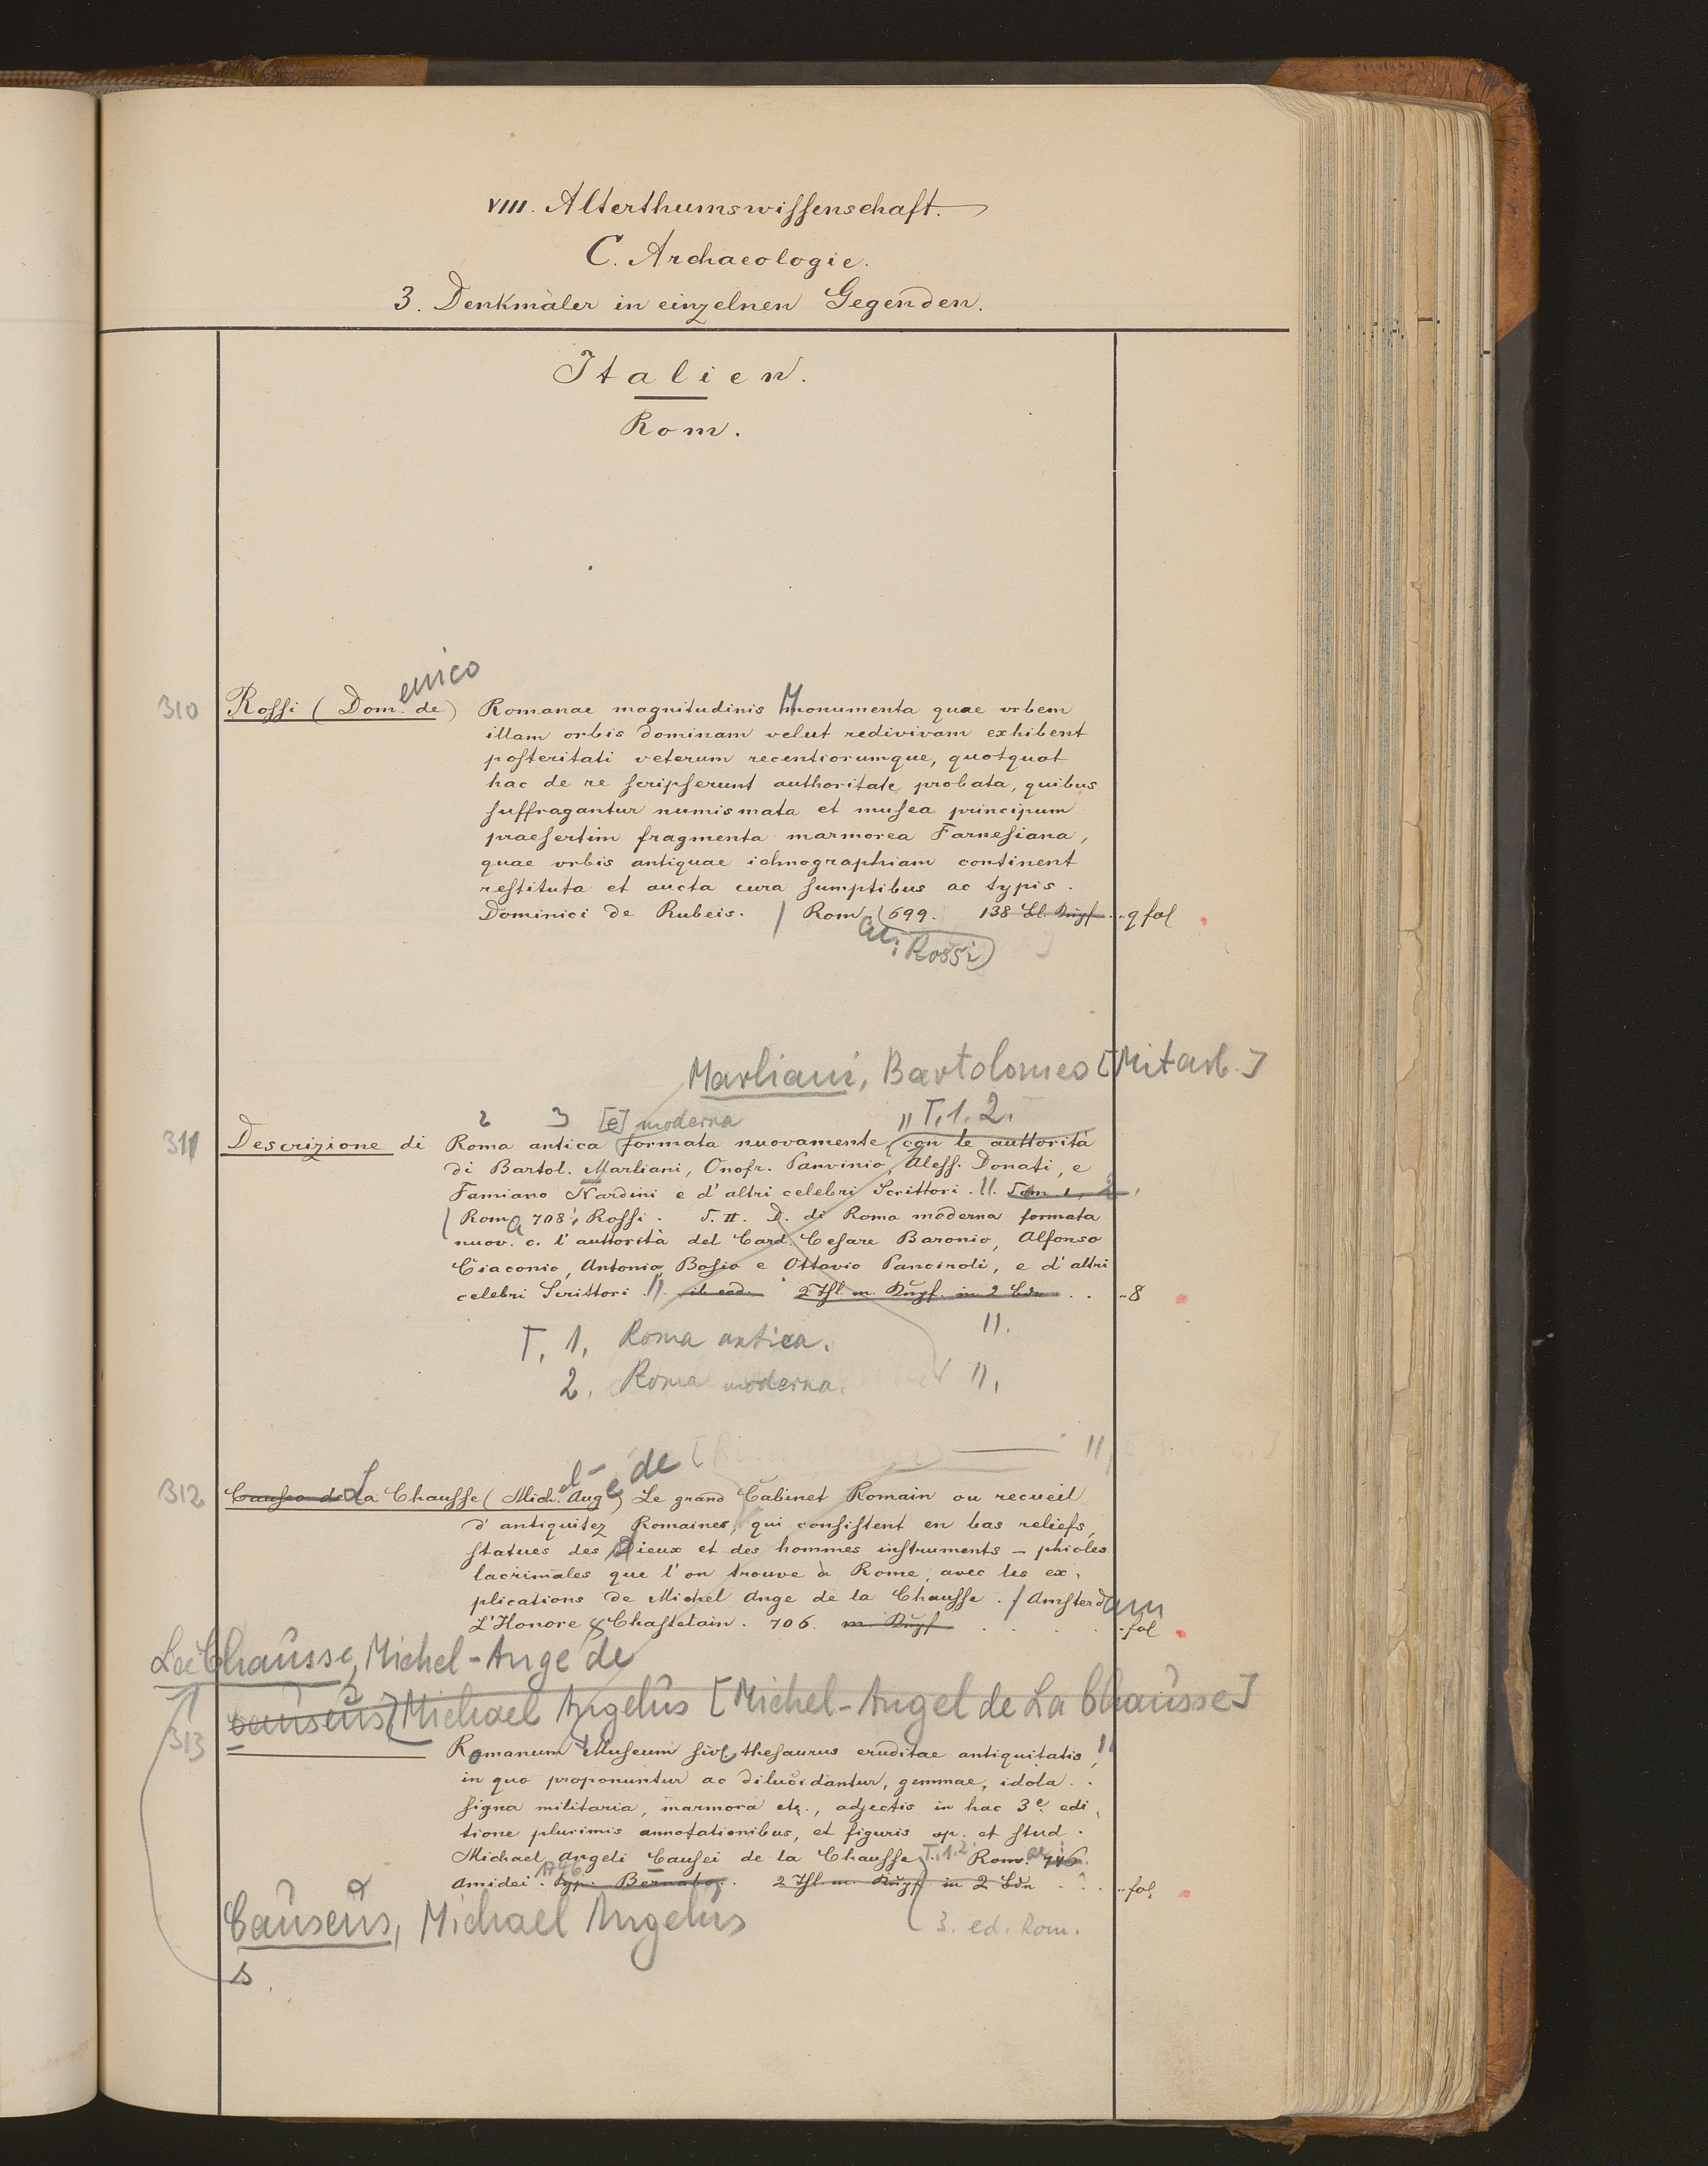 VIII. Alterthumswissenschaft.
C. Archaeologie.
3. Denkmäler in einzelnen Gegenden.
Italien.
Rom.
enico
310 Rossi (Dom. de) Romanae magnitudinis Monumenta quae vrbem
illam orbis dominam velut redivivam exhibent
posteritati veterum recentiorumque, quotquot
hac de re scripserunt authoritate probata, quibus
suffragantur numismata et musea principum
praesertim fragmenta marmorea Farnesiana,
quae vrbis antiquae ichnographiam continent
restituta et aucta cura sumptibus ac typis.
Dominici de Rubeis. / Rom (699. 138 Bl. Kupf. q fol
Rossi)
Marliani, Bartolomeo [Mitarb.]
2 3 [e] moderna " T. 1. 2.
311 Descrizione di Roma antica formata nuovamente, con le auttorità
di Bartol. Marliani, Onofr. Panvinio, Aless. Donati, e
Famiano Nardini e d'altri celebri Scrittori. ". Tom 1, 2,
Roma 708: Rossi. T. II. D. di Roma moderna formata
nuov. c. l'auttorità del Card. Cesare Baronio, Alfonso
Ciaconio, Antonio Bosio e Ottavio Panciroli, e d'altri
celebri Scrittori. ". ib eod. 2 Thl m. Kupf. in 2 Bdn .. 8
T. 1, Roma antica. ".
2. Roma moderna. ",
"
el- e de
312 Causeo de La Chausse (Mich. Ang) Le grand Cabinet Romain ou recueil
d'antiquitez Romaines, qui consistent en bas reliefs,
statues des Dieux et des hommes instruments - phioles
lacrimales que l'on trouve à Rome, avec les ex,
plications de Michel Ange de la Chausse. / Amsterdam
L'Honore & Chastelain. 706. m Kupf . . . . fol
La Chausse, Michel-Ange de
Causeus, Michael Angelus [Michel-Angel de La Chausse]
313 Romanum Museum sive thesaurus eruditae antiquitatis, "
in quo proponuntur ac dilucidantur, gemmae, idola .
signa militaria, marmora etc., adjectis in hac 3e. edi,
tione plurimis annotationibus, et figuris op. et stud.
Michael Angeli Causei de la Chausse T. 1.2 Rom. 746.
1746
Amidei. Typ. Bernabo. 2 Thl. m. Kupf in 2 Bdn ... fol
Causeus, Michael Angelus 3. ed. Rom.
s.